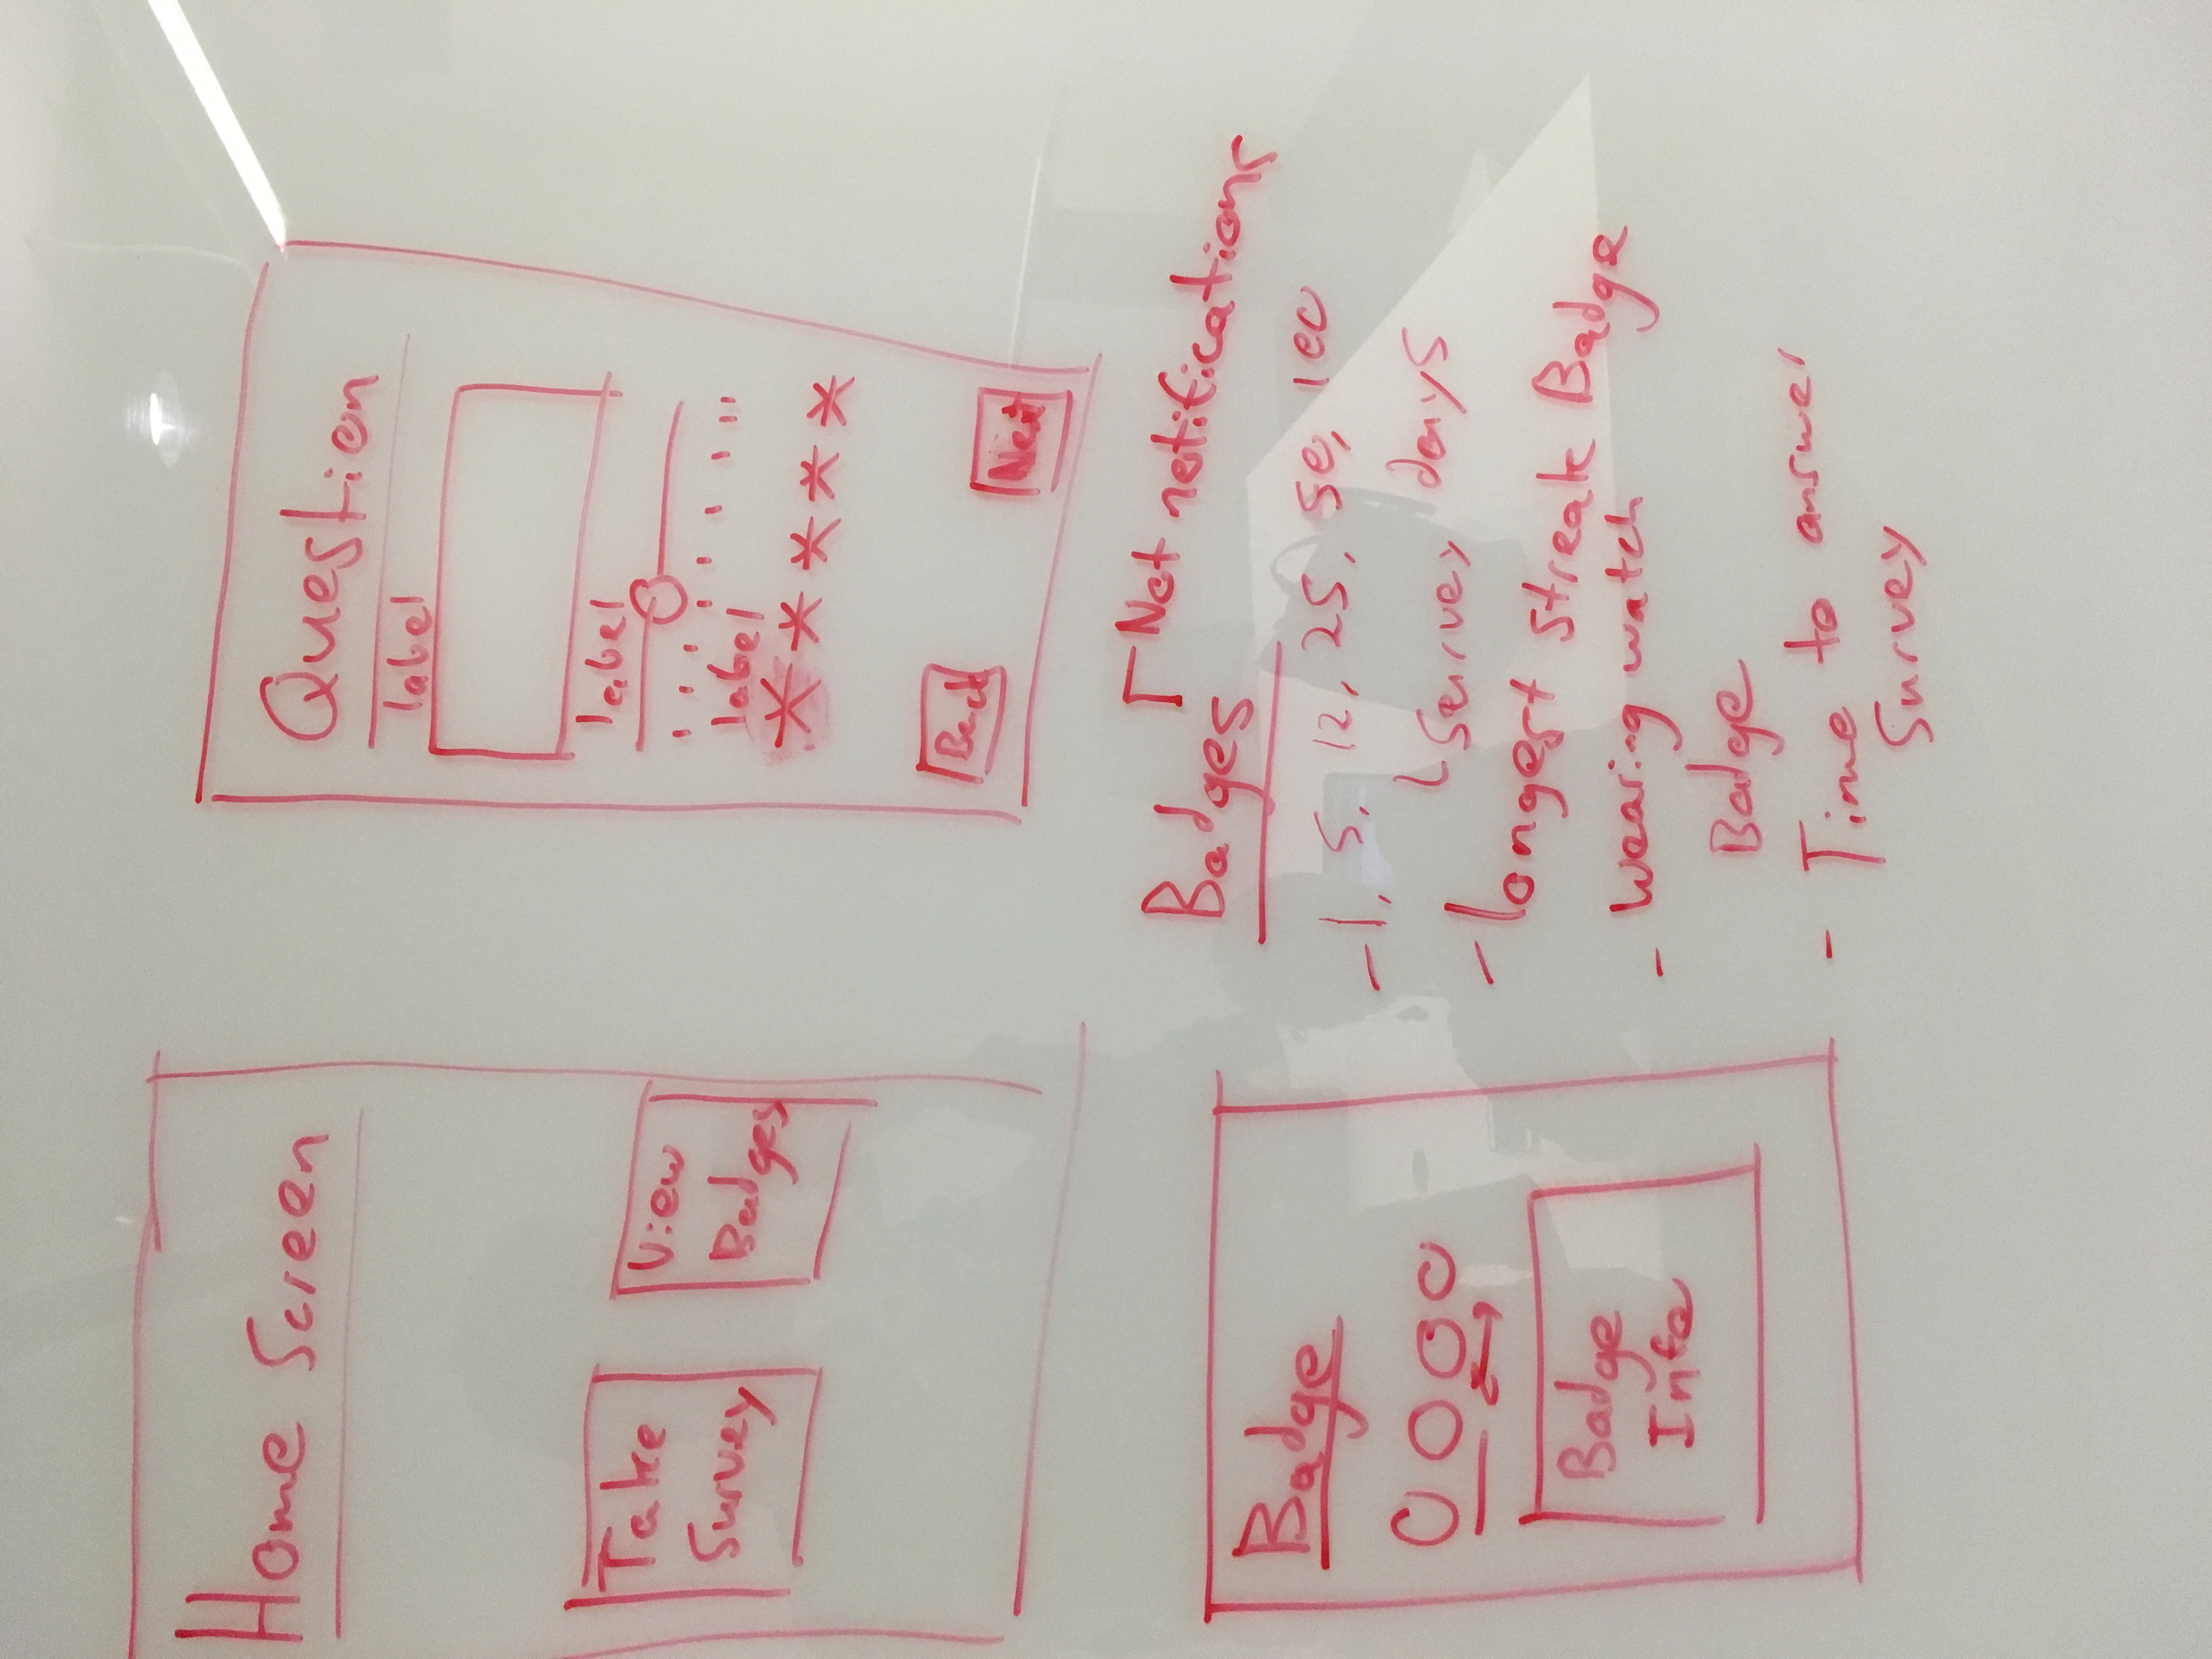 Home Screen
Take
Survey
View
Badges
Question
label
label
label
* * * * *
Back
Next
Badge
Badge
Info
Badges
Not notifications
- 1, 5, 12, 25, 50, 100
Survey days
- longest streak Badge
- wearing watch
Badge
- Time to answer
Survey